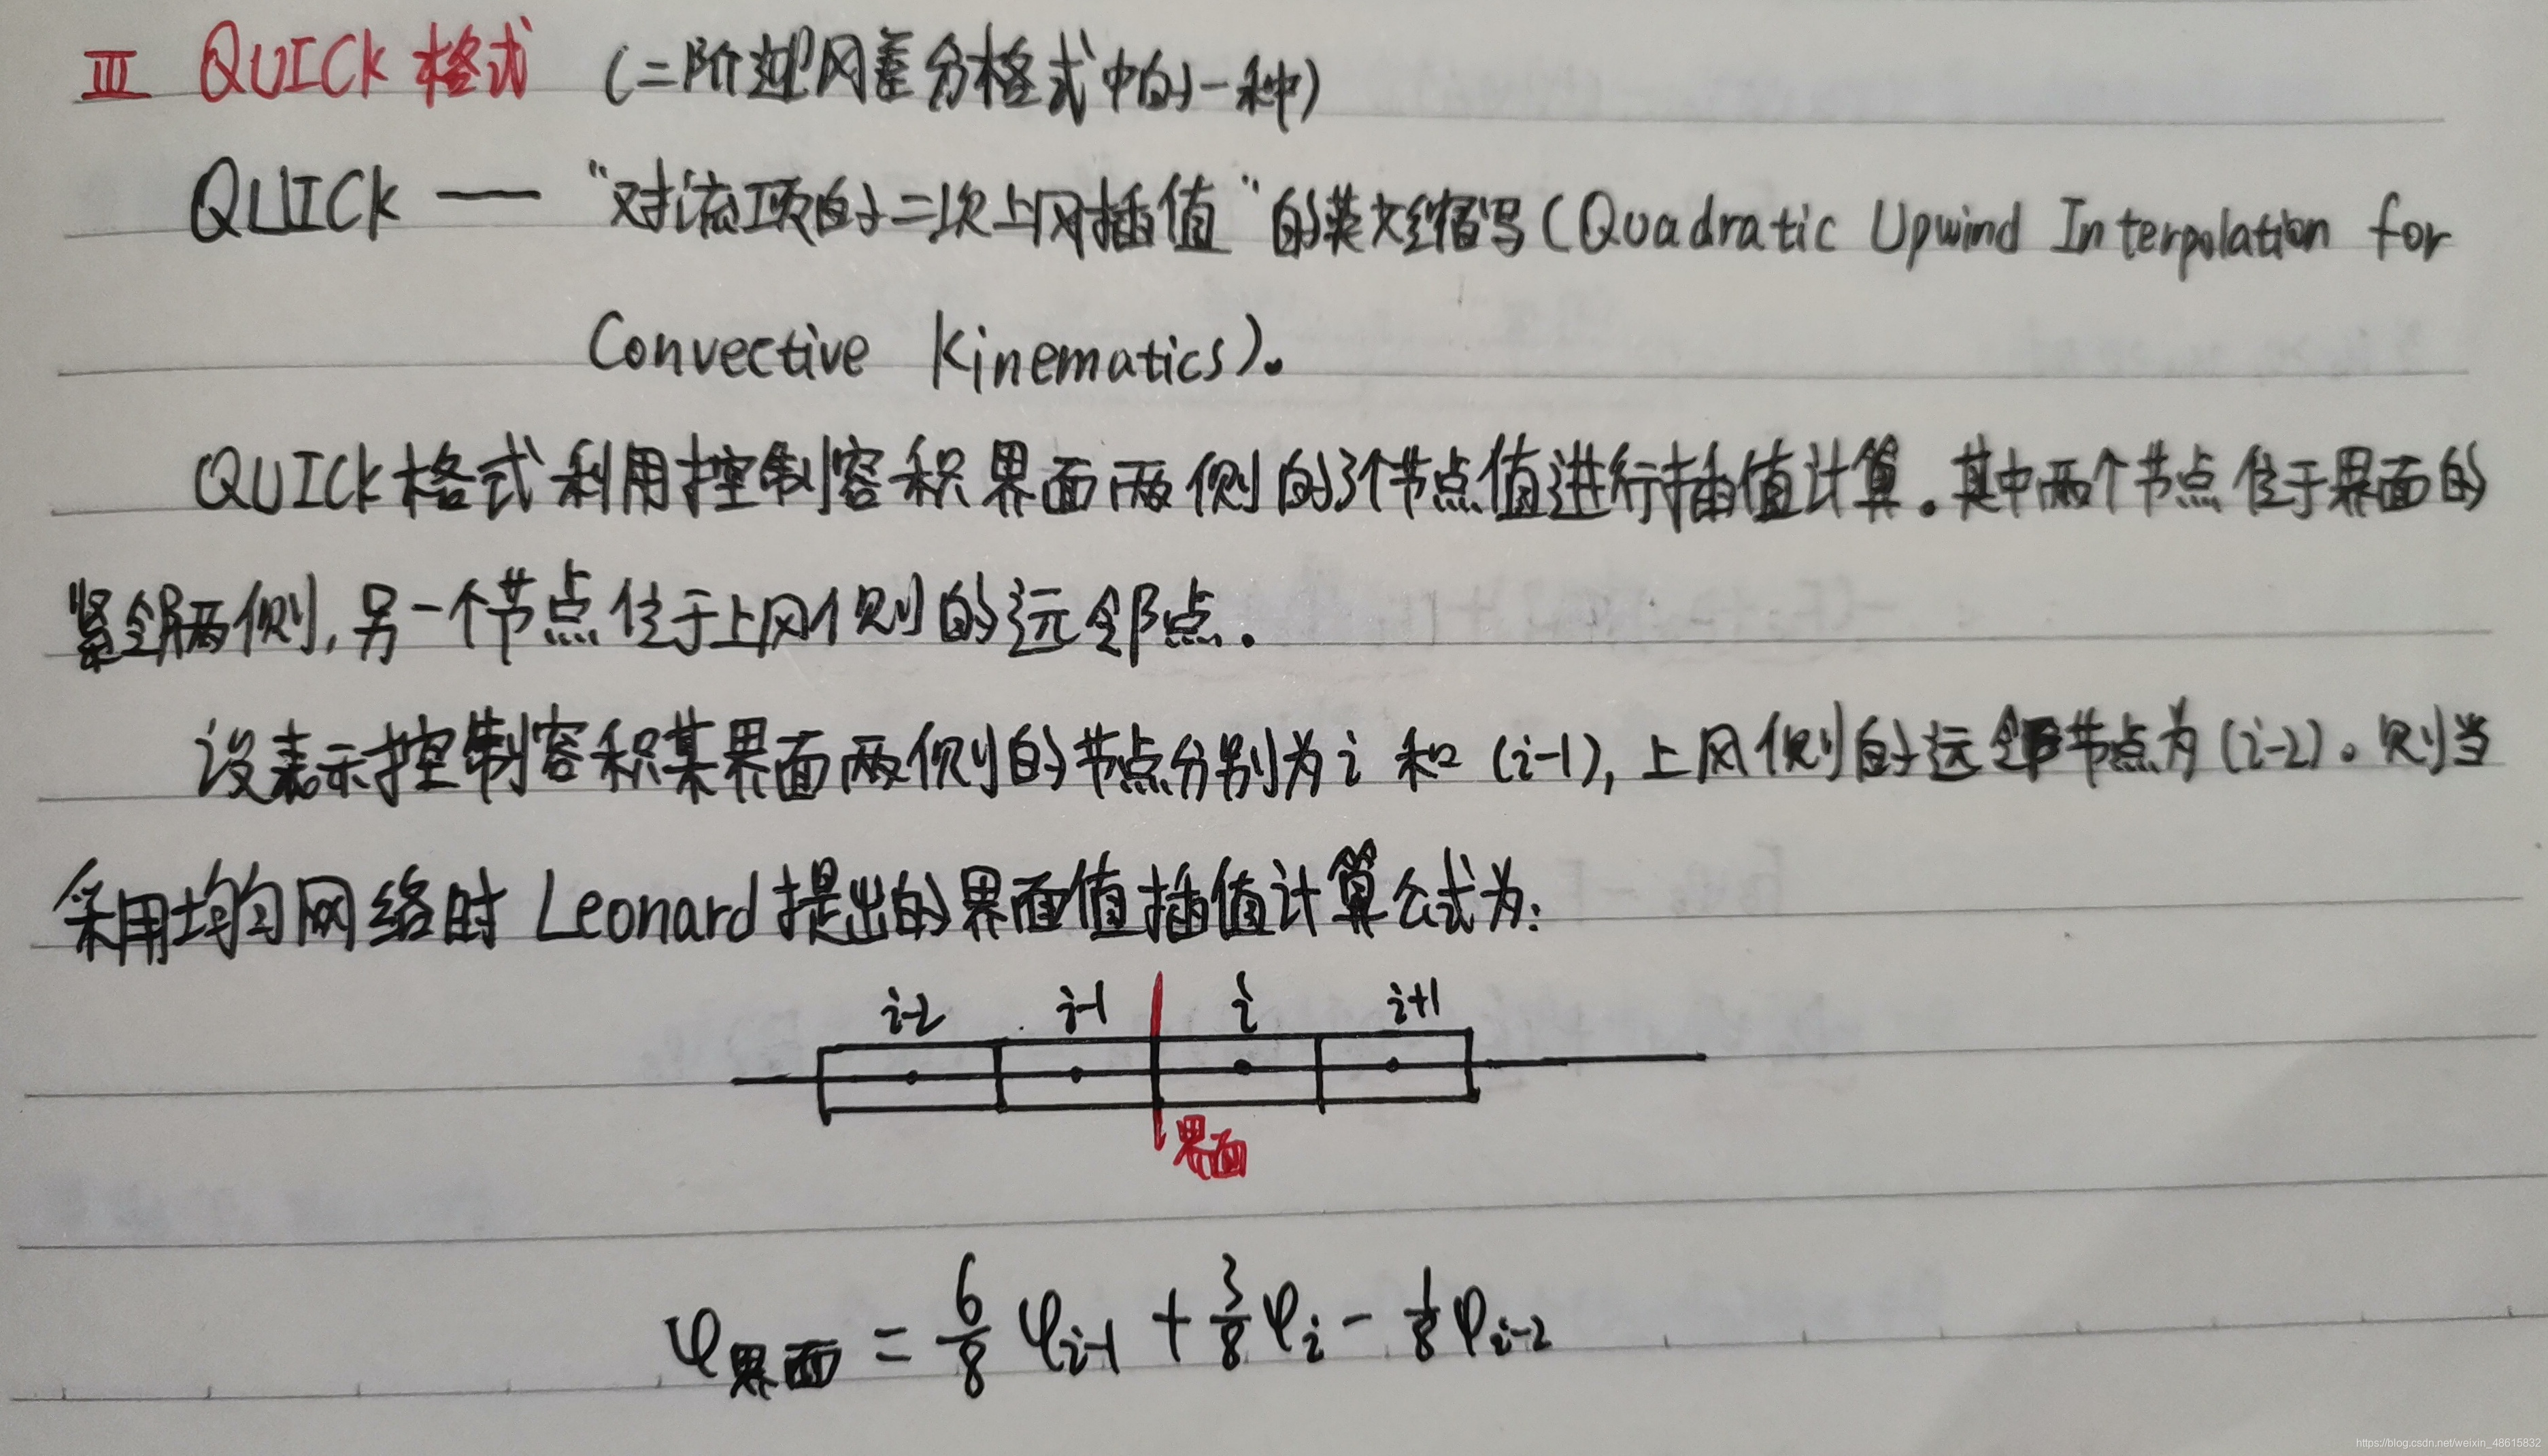 Ⅲ QUICK格式 (二阶迎风差分格式中的一种)
QUICK — “对流项的二次上风插值”的英文缩写(Quadratic Upwind Interpolation for
Convective Kinematics)。
QUICK格式利用控制容积界面两侧的3个节点值进行插值计算。其中两个节点位于界面的
紧邻两侧,另一个节点位于上风侧的远邻点。
设表示控制容积某界面两侧的节点分别为 i 和 (i-1), 上风侧的远邻节点为(i-2)。则当
采用均匀网络时 Leonard提出的界面值插值计算公式为:
i-2 i-1 i i+1
界面
φ界面 = 6/8 φi-1 + 3/8 φi - 1/8 φi-2
https://blog.csdn.net/weixin_48615832